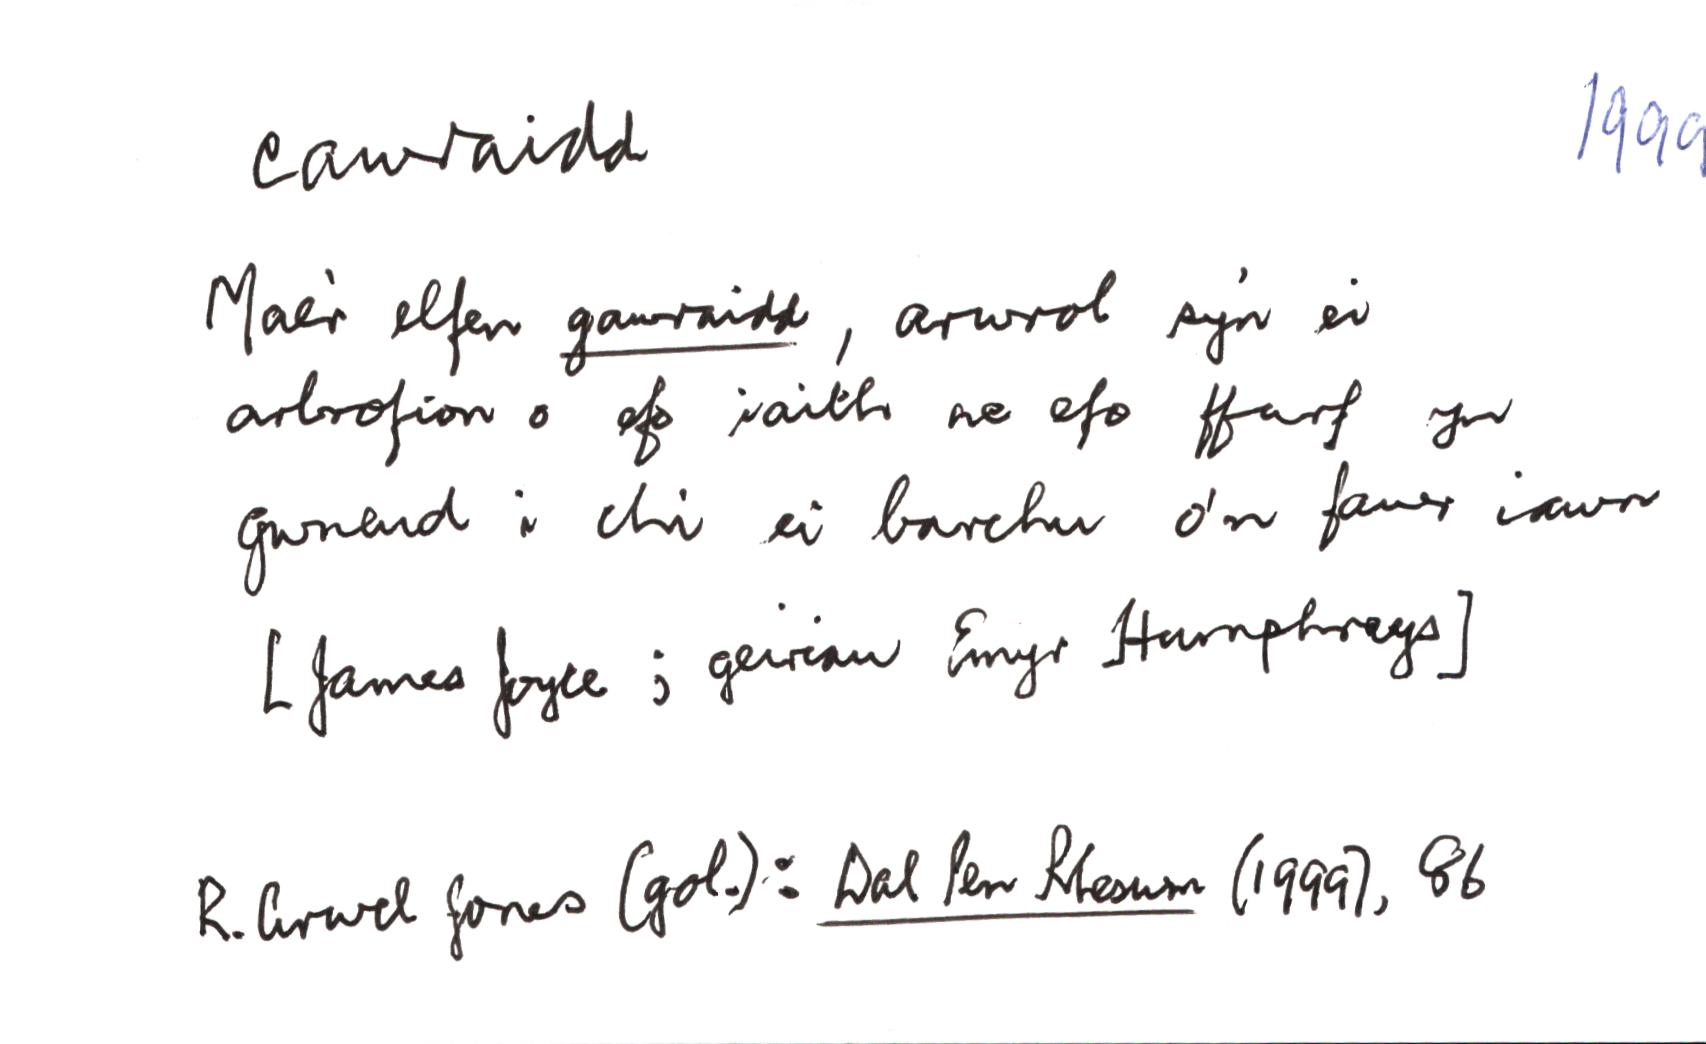 cawraidd
1999
Mae'r elfen gawraidd, arwrol sy'n ei
arbrofion o efo iaith ne efo ffurf yn
gwneud i chi ei barchu o'n fawr iawn
[James Joyce ; geiriau Emyr Humphreys]
R. Arwel Jones (gol.): Dal Pen Rheswm (1999), 86